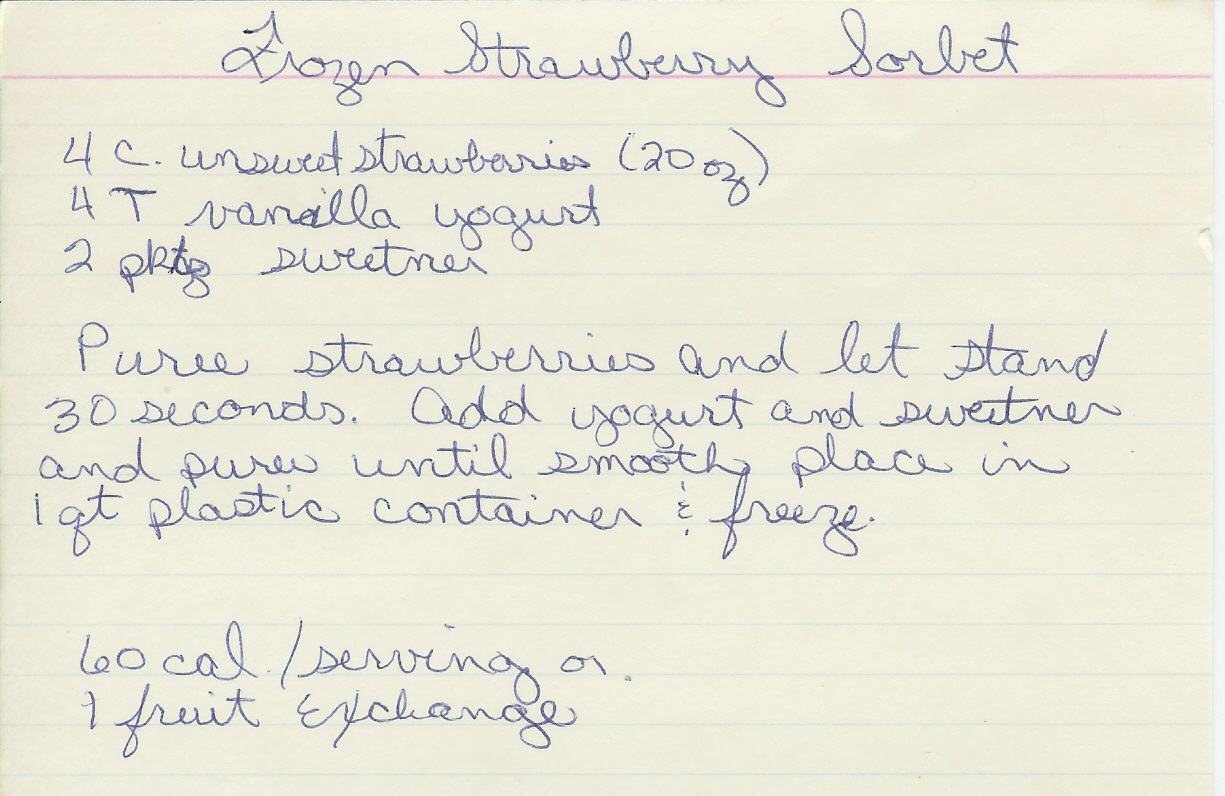 Frozen Strawberry Sorbet
4 C. unsweet strawberries (20 oz)
4 T vanilla yogurt
2 pktg sweetner
Puree strawberries and let stand
30 seconds. Add yogurt and sweetner
and puree until smooth, place in
1 qt plastic container & freeze.
60 cal./serving or
1 fruit Exchange